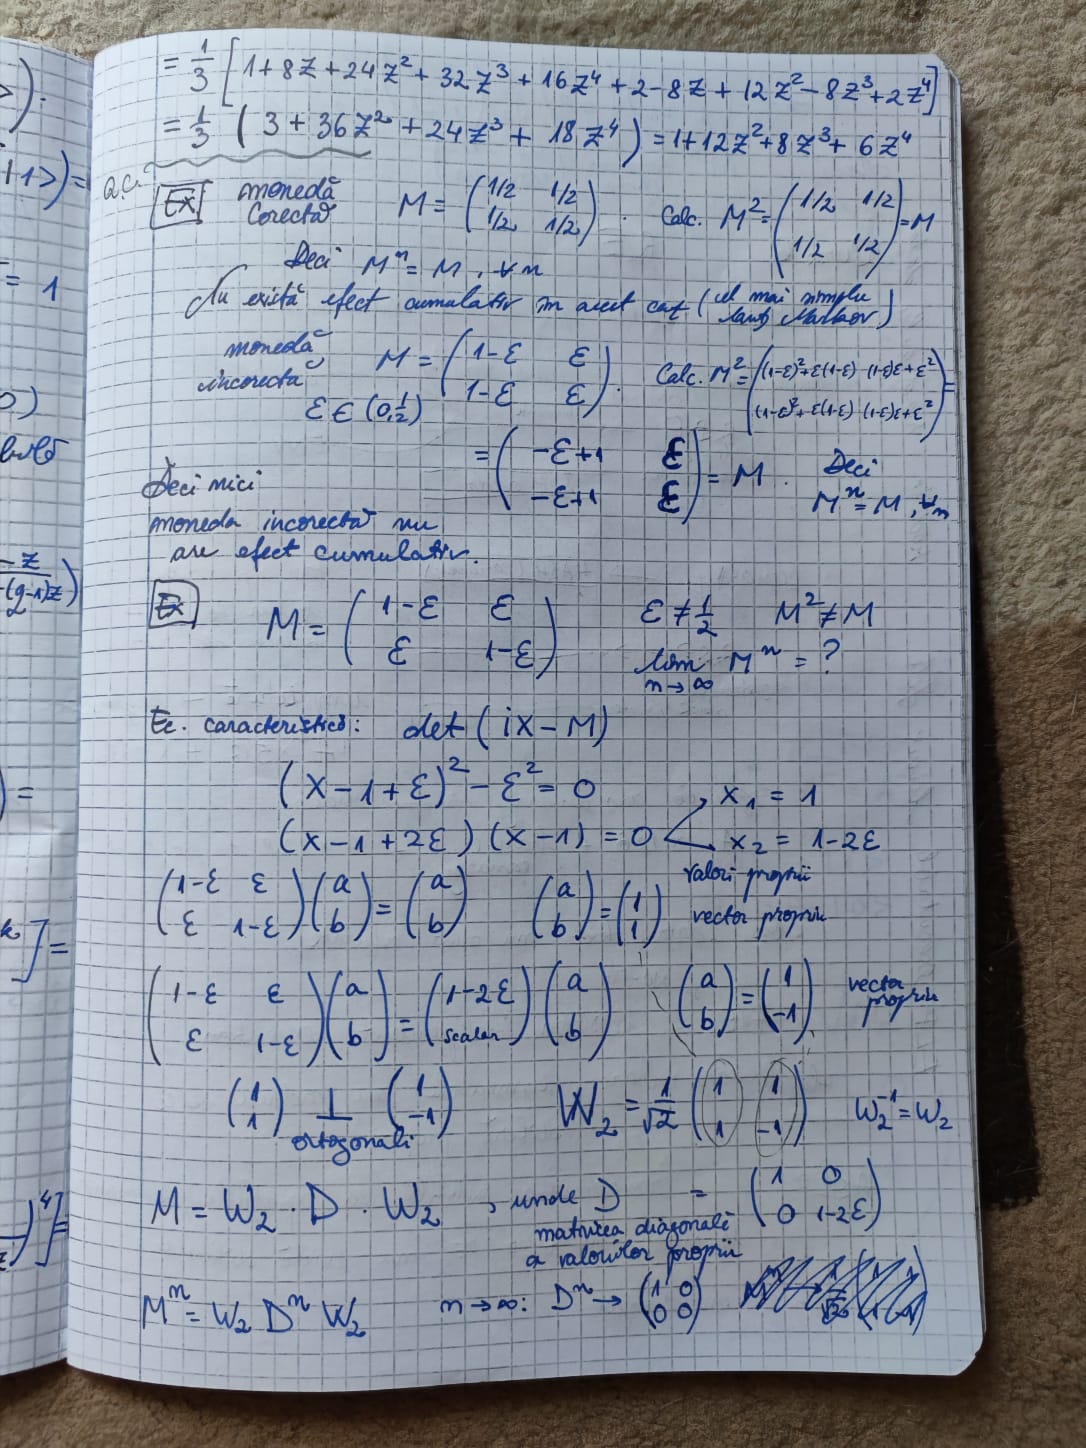 = 1/3 [1+8z+24z²+32z³+16z⁴+2-8z+12z²-8z³+2z⁴]
= 1/3 (3+36z²+24z³+18z⁴) = 1+12z²+8z³+6z⁴
Ex monedă corectă M = (1/2 1/2; 1/2 1/2). Calc. M² = (1/2 1/2; 1/2 1/2) = M
Deci Mⁿ = M, ∀n
Nu există efect cumulativ în acest caz (cel mai simplu lanț Markov)
monedă incorectă M = (1-ε ε; 1-ε ε). Calc. M² = ((1-ε)²+ε(1-ε) (1-ε)ε+ε²; (1-ε)²+ε(1-ε) (1-ε)ε+ε²) =
ε ∈ (0,1/2)
= (-ε+1 ε; -ε+1 ε) = M. Deci
Mⁿ = M, ∀n
Deci nici
moneda incorectă nu
are efect cumulativ.
Ex M = (1-ε ε; ε 1-ε) ε ≠ 1/2 M² ≠ M
lim n→∞ Mⁿ = ?
Ec. caracteristică: det (ix - M)
(x-1+ε)² - ε² = 0
(x-1+2ε)(x-1) = 0 x₁ = 1
x₂ = 1-2ε
valori proprii
(1-ε ε; ε 1-ε)(a; b) = (a; b) (a; b) = (1; 1) vector propriu
(1-ε ε; ε 1-ε)(a; b) = (1-2ε scalar)(a; b) (a; b) = (1; -1) vector propriu
(1; 1) ⊥ (1; -1) W₂ = 1/√2 (1 1; 1 -1) W₂⁻¹ = W₂
ortogonali
M = W₂ · D · W₂, unde D = (1 0; 0 1-2ε)
matricea diagonală
a valorilor proprii
Mⁿ = W₂ Dⁿ W₂ n→∞: Dⁿ → (1 0; 0 0)